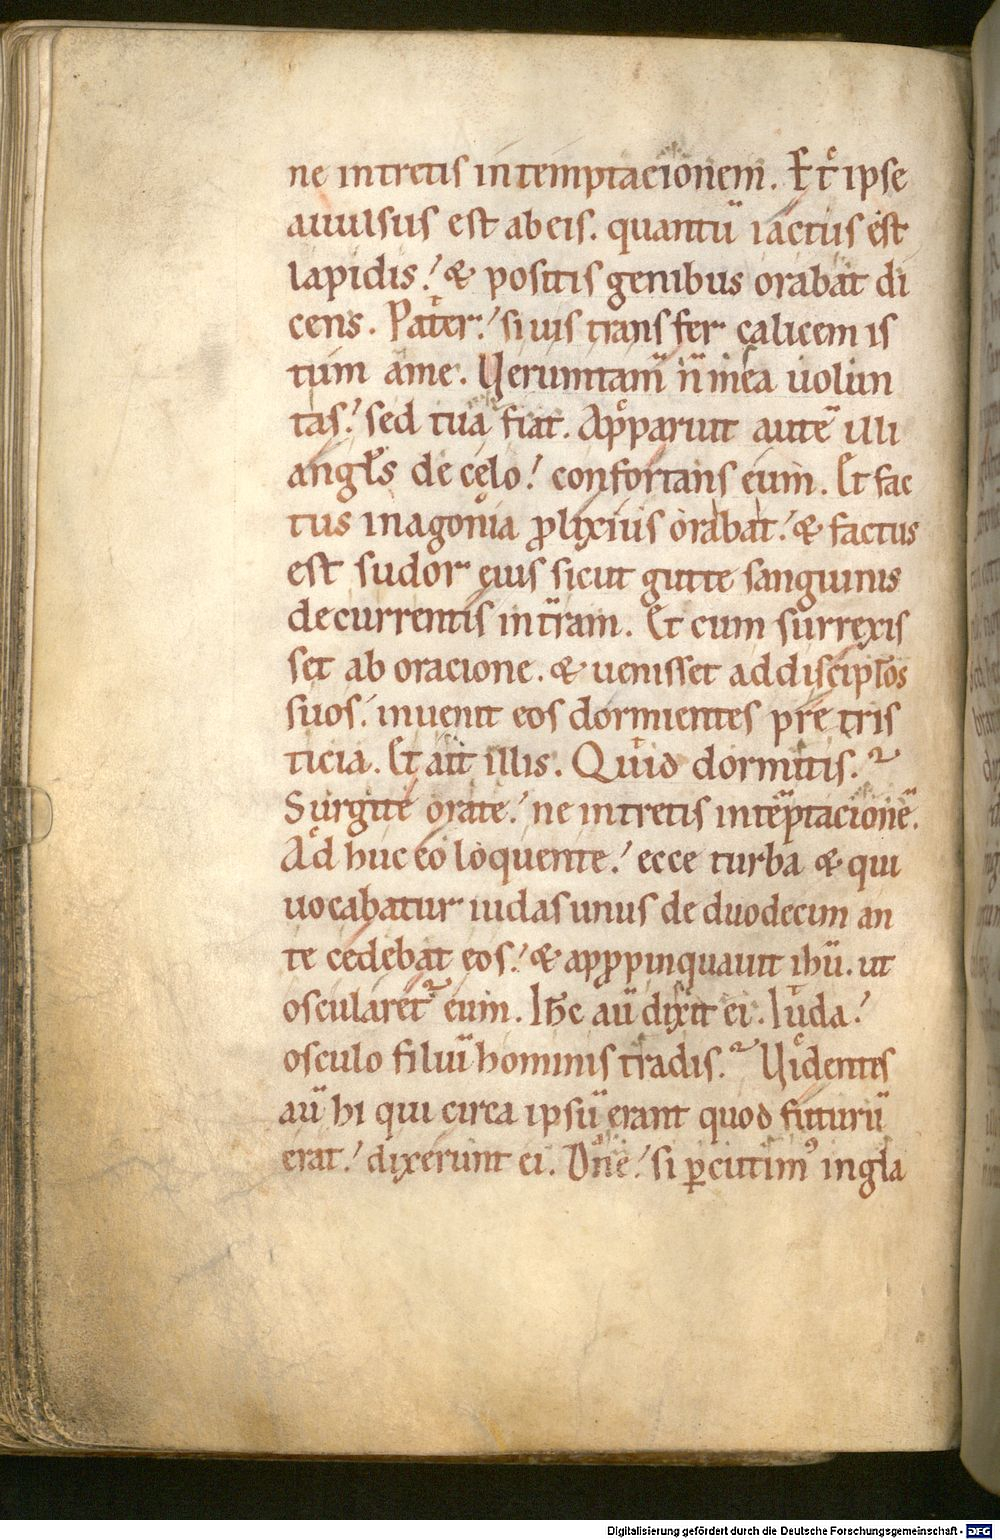 ne intretis in temptacionem. Et ipse
auulsus est ab eis. quantū iactus est
lapidis. & positis genibus orabat di
cens. Pater. si uis transfer calicem is
tum a me. Ueruntam̄ n̄ mea uolun
tas. sed tua fiat. Apparuit autē illi
angł̄s de celo. confortans eum. Et fac
tus in agonia ꝓlixius orabat. & factus
est sudor eius sicut gutte sanguinis
decurrentis in t̄ram. Et cum surrexis
set ab oracione. & uenisset ad discipłos
suos. inuenit eos dormientes pre tris
ticia. Et ait illis. Quid dormitis.
Surgite orate. ne intretis in tēptacionē.
Ad huc eo loquente. ecce turba & qui
uocabatur iudas unus de duodecim an
te cedebat eos. & apꝓpinquauit ihū. ut
oscularet᷑ eum. Ihc̄ aū dixit ei. Iuda.
osculo filiū hominis tradis. Uidentes
aū hi qui circa ipsū erant quod futurū
erat. dixerunt ei. Dn̄e. si ꝑcutimꝰ in gla
Digitalisierung gefördert durch die Deutsche Forschungsgemeinschaft - DFG